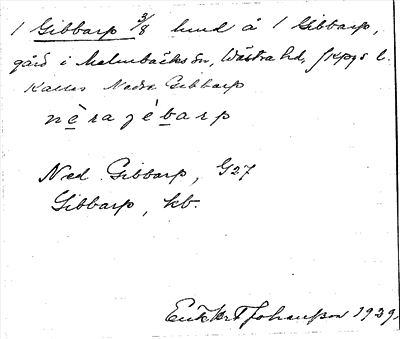 1 Gibbarp 3/8 hmd å 1 Gibbarp,
gård i Malmbäcks sn, Västra hd, Jkpgs l.
Kallas Nedra Gibbarp
nèrajébarp
Ned. Gibbarp, G27
Gibbarp, kb.
Johansson 1929.